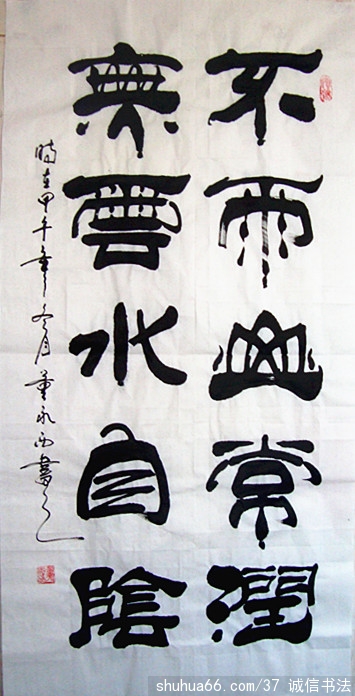 不雨山常潤
無雲水自陰
時在甲午年冬月董永西書之
shuhua66.com/37 诚信书法